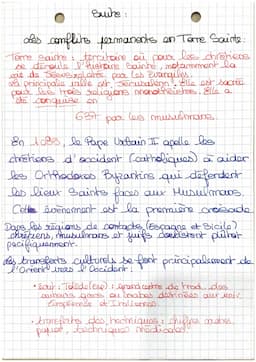 Suite :
Les conflits permanents en Terre Sainte :
Terre Sainte : territoire où pour les chrétiens
se déroule l'histoire Sainte, notamment la
vie de Jésus relatée par les Evangiles.
Sa principale ville est Jérusalem. Elle est sacrée
pour les trois religions monothéistes. Elle a
été conquise en
637 par les musulmans.
En 1095, le Pape Urbain II apelle les
chrétiens d'occident (catholiques) à aider
les Orthodoxes Byzantins qui défendent
les lieux Saints faces aux Musulmans.
Cette évènement est la première croisade
Dans les régions de contacts (Espagne et Sicile)
chrétiens, musulmans et juifs coexistent plutôt
pacifiquement.
Les transferts culturels se font principalement de
l'Orient vers l'Occident :
• écrit : Tolède (Esp) : grand centre de trad. des
auteurs grecs ou arabes destinées aux univ.
Européenne et Italienne.
• transferts des techniques : chiffres arabes,
papier, techniques médicales.